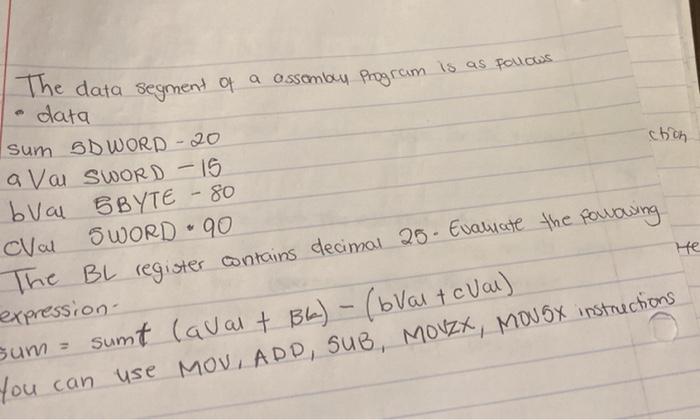 The data segment of a assembly program is as follows
. data
sum SDWORD -20
aVal SWORD -15
bVal SBYTE -80
cVal SWORD -90
The BL register contains decimal 25. Evaluate the following
expression.
sum = sum+ (aVal + BL) - (bVal + cVal)
You can use MOV, ADD, SUB, MOVZX, MOVSX instructions
ction
He